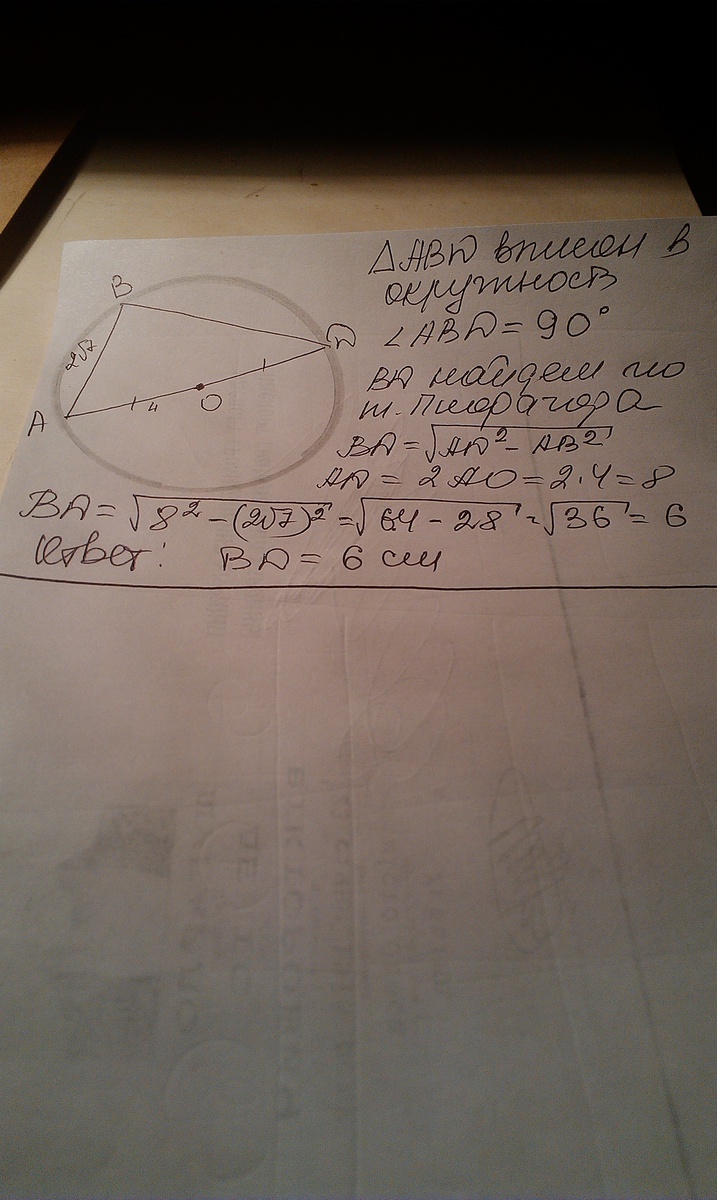 B
2√7
A
4
O
D
△ABD вписан в
окружность
∠ABD = 90°
BD найдем по
т. Пифагора
BD = √AD² - AB²
AD = 2AO = 2·4 = 8
BD = √8² - (2√7)² = √64 - 28 = √36 = 6
Ответ: BD = 6 см